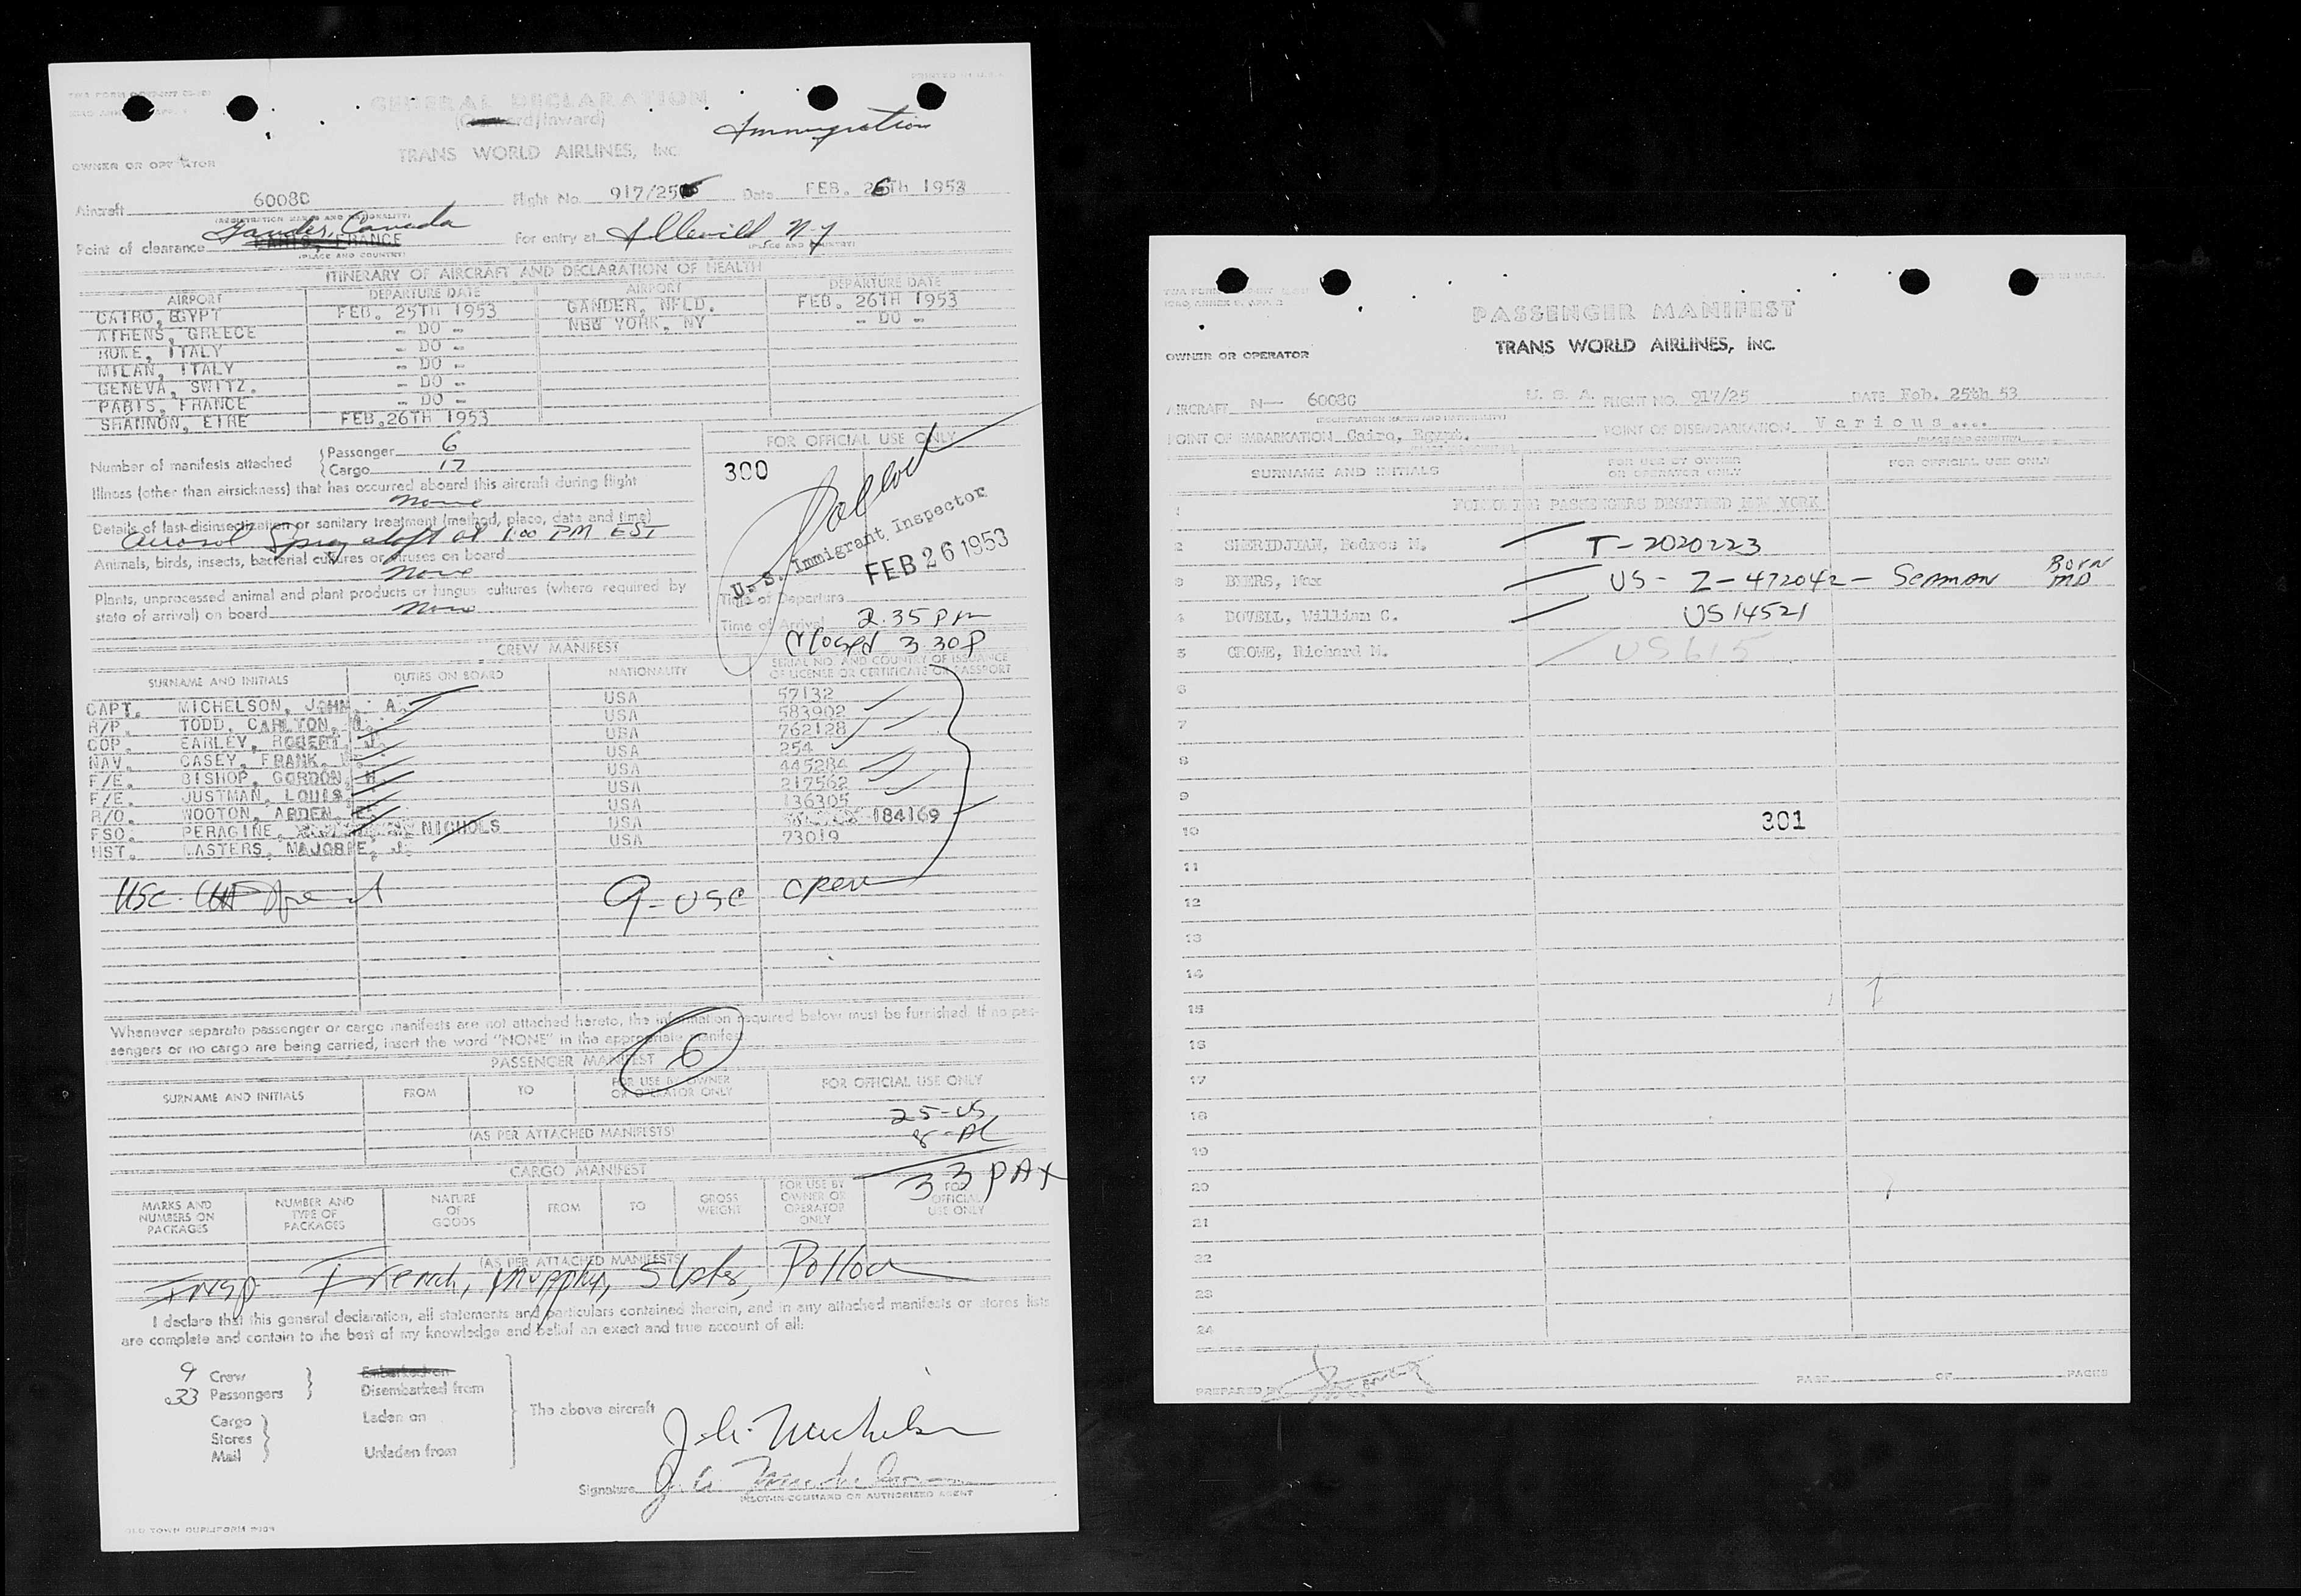 PRINTED IN U.S.A.
GENERAL DECLARATION
(Outward/Inward)
Immigration
OWNER OR OPERATOR
TRANS WORLD AIRLINES, INC.
Aircraft 6008C Flight No. 917/25 Date FEB. 26TH 1953
(REGISTRATION MARKS AND NATIONALITY)
Point of clearance Gander, Canada PARIS, FRANCE For entry at Idlewild, N.Y
(PLACE AND COUNTRY) (PLACE AND COUNTRY)
ITINERARY OF AIRCRAFT AND DECLARATION OF HEALTH
AIRPORT DEPARTURE DATE AIRPORT DEPARTURE DATE
CAIRO, EGYPT FEB. 25TH 1953 GANDER, NFLD. FEB. 26TH 1953
ATHENS, GREECE - DO - NEW YORK, NY - DO -
ROME, ITALY - DO -
MILAN, ITALY - DO -
GENEVA, SWITZ. - DO -
PARIS, FRANCE - DO -
SHANNON, EIRE FEB.26TH 1953
Number of manifests attached { Passenger 6
{ Cargo 17
Illness (other than airsickness) that has occurred aboard this aircraft during flight
None
Details of last disinsectization or sanitary treatment (method, place, date and time)
Aerosol Spray aloft at 1:00 PM EST
Animals, birds, insects, bacterial cultures or viruses on board
None
Plants, unprocessed animal and plant products or fungus cultures (where required by
state of arrival) on board None
FOR OFFICIAL USE ONLY
300
Pollock
U. S. Immigrant Inspector
FEB 26 1953
Time of Departure
Time of Arrival 2.35 Pm
Closed 3.30P
CREW MANIFEST
SURNAME AND INITIALS DUTIES ON BOARD NATIONALITY SERIAL NO. AND COUNTRY OF ISSUANCE
OF LICENSE OR CERTIFICATE OR PASSPORT
CAPT. MICHELSON, JOHN, A. USA 57132
R/P. TODD, CARLTON, USA 583902
COP. EARLEY, ROBERT, J. USA 762128
NAV. CASEY, FRANK, USA 254
F/E. BISHOP, GORDON, H. USA 445284
F/E. JUSTMAN, LOUIS, USA 217562
R/O. WOOTON, ARDEN, E. USA 136305
FSO. PERAGINE, NICHOLS USA 184169
HST. MASTERS, MAJORIE, J. USA 73019
USC
9- USC crew
Whenever separate passenger or cargo manifests are not attached hereto, the information required below must be furnished. If no pas-
sengers or no cargo are being carried, insert the word "NONE" in the appropriate manifest.
6
PASSENGER MANIFEST
SURNAME AND INITIALS FROM TO FOR USE BY OWNER
OR OPERATOR ONLY FOR OFFICIAL USE ONLY
25-US
8-AL
(AS PER ATTACHED MANIFESTS)
33 PAX
CARGO MANIFEST
MARKS AND
NUMBERS ON
PACKAGES NUMBER AND
TYPE OF
PACKAGES NATURE
OF
GOODS FROM TO GROSS
WEIGHT FOR USE BY
OWNER OR
OPERATOR
ONLY FOR
OFFICIAL
USE ONLY
(AS PER ATTACHED MANIFESTS)
Insp French, Murphy, Pollock
I declare that this general declaration, all statements and particulars contained therein, and in any attached manifests or stores lists
are complete and contain to the best of my knowledge and belief an exact and true account of all:
9 Crew } Embarked on
33 Passengers } Disembarked from
Cargo } Laden on
Stores }
Mail } Unladen from
The above aircraft
J. A. Michelson
Signature J. A. Michelson
PILOT-IN-COMMAND OR AUTHORIZED AGENT
OLD TOWN DUPLIFORM
PASSENGER MANIFEST
OWNER OR OPERATOR
TRANS WORLD AIRLINES, INC.
AIRCRAFT N— 6008C U. S. A. FLIGHT NO. 917/25 DATE Feb. 25th 53
(REGISTRATION MARKS AND NATIONALITY)
POINT OF EMBARKATION Cairo, Egypt. POINT OF DISEMBARKATION Various...
(PLACE AND COUNTRY)
SURNAME AND INITIALS FOR USE BY OWNER
OR OPERATOR ONLY FOR OFFICIAL USE ONLY
1 FOLLOWING PASSENGERS DESTINED NEW YORK
2 SHERIDJIAN, Bedros M. T-2020223
3 BYERS, Max US-Z-472042- Seaman Born MD
4 DOVELL, William C. US 14521
5 CROWE, Richard M. US 615
6
7
8
9
10 301
11
12
13
14
15
16
17
18
19
20
21
22
23
24
PREPARED BY PAGE OF PAGES